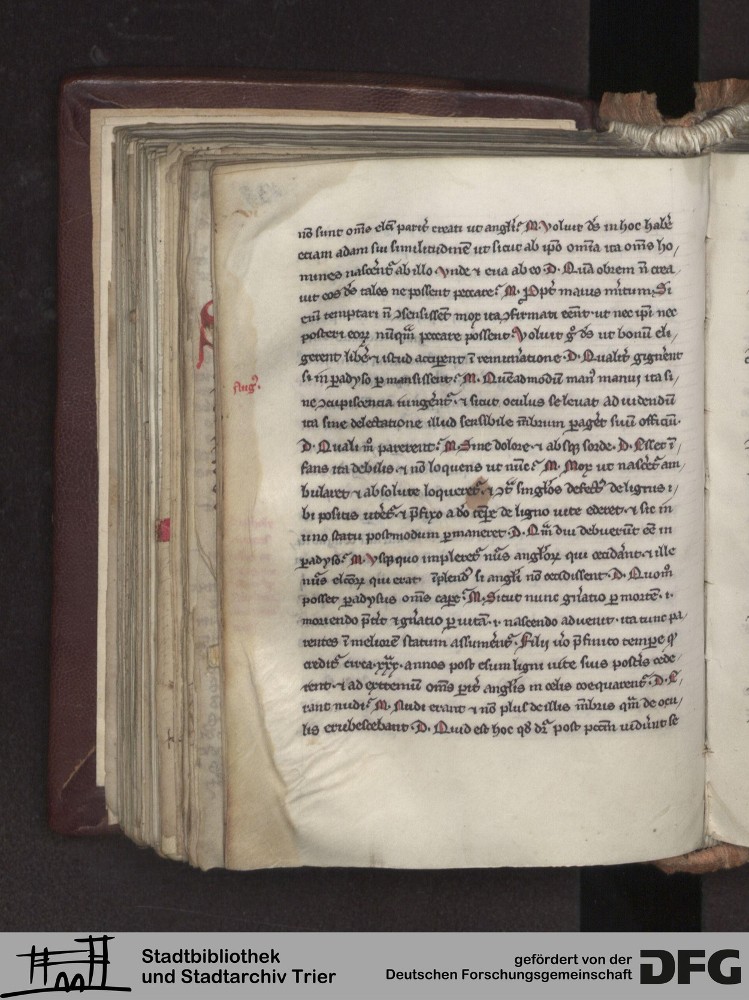 nō sunt om̄s elc̄i parit᷑ creati ut angłi· M· Voluit ds̄ in hoc habē
etiam adam sui similitudinē ut sicut ab ip̄o om̄ia ita om̄s ho/
mines nascerēt᷑ ab illo unde ⁊ eua ab eo· D· Quā obrem n̄ crea
uit eos ds̄ tales ne possent peccare· M· Ꝓpt᷑ maius m̄itum· Si
eni temptari n̄ ꝯsensissent mox ita ꝯfirmati eēnt ut nec ip̄i nec
posteri eoꝝ nūqͣ peccare possent· Voluit g̊ ds̄ ut bonū eli/
gerent libē ⁊ istud acciperent ī remunatione· D· Qualit᷑ gignent᷑
Aug᷒.
si in ꝑadyso ꝑmansissent· M· Quēadmodū man᷒ manui ita si/
ne ꝯcupiscentia iungerēt᷑· ⁊ sicut oculus se leuat ad uidendū
ita sine delectatione illud sensibile m̄brum ꝑageret suū officiū·
D· Quali m̊ parerent· M· Sine dolore· ⁊ absqꝫ sorde· D· Esset ī/
fans ita debilis· ⁊ nō loquens ut nūc· M· Mox ut nasceret᷑ am/
bularet ⁊ absolute loqueret᷑· ⁊ ꝯt᷑ singłos defect᷒ de lignis i/
bi positis uteret᷑· ⁊ p̄fixo a dō tēpe de ligno uite ederet· ⁊ sic in
uno statu postmodum ꝑmaneret· D· Qm̄ diu debuerūt eē in
ꝑadyso· M· Vsqꝫ quo impleret᷑ nūs angłoꝝ qui cecidant· ⁊ ille
nūs elc̄oꝝ qui erat īplend᷒ si angłi nō cecidissent· D· Quom̊
posset ꝑadysus om̄s capē· M· Sicut nunc gn̄atio ꝑ mortē· i·
moriendo p̄t᷑it ⁊ gn̄atio ꝑ uitā· i· nascendo aduenit· ita tunc pa/
rentes ī meliorē statum assumēt᷑· Filii ūo p̄finito tempe qͦ
credit᷑ circa·xxx· annos post esum ligni uite suis postis cede
rent· ⁊ ad extremū om̄s parit᷑ angłis in celis coequarent᷑· D· E/
rant nudi· M· Nudi erant ⁊ nō plus de illis m̄bris qͣm de ocu/
lis erubescebant· D· Quid est hoc qd̄ dr̄ post pccm̄ uidūnt se
Stadtbibliothek
und Stadtarchiv Trier
gefördert von der
Deutschen Forschungsgemeinschaft
DFG